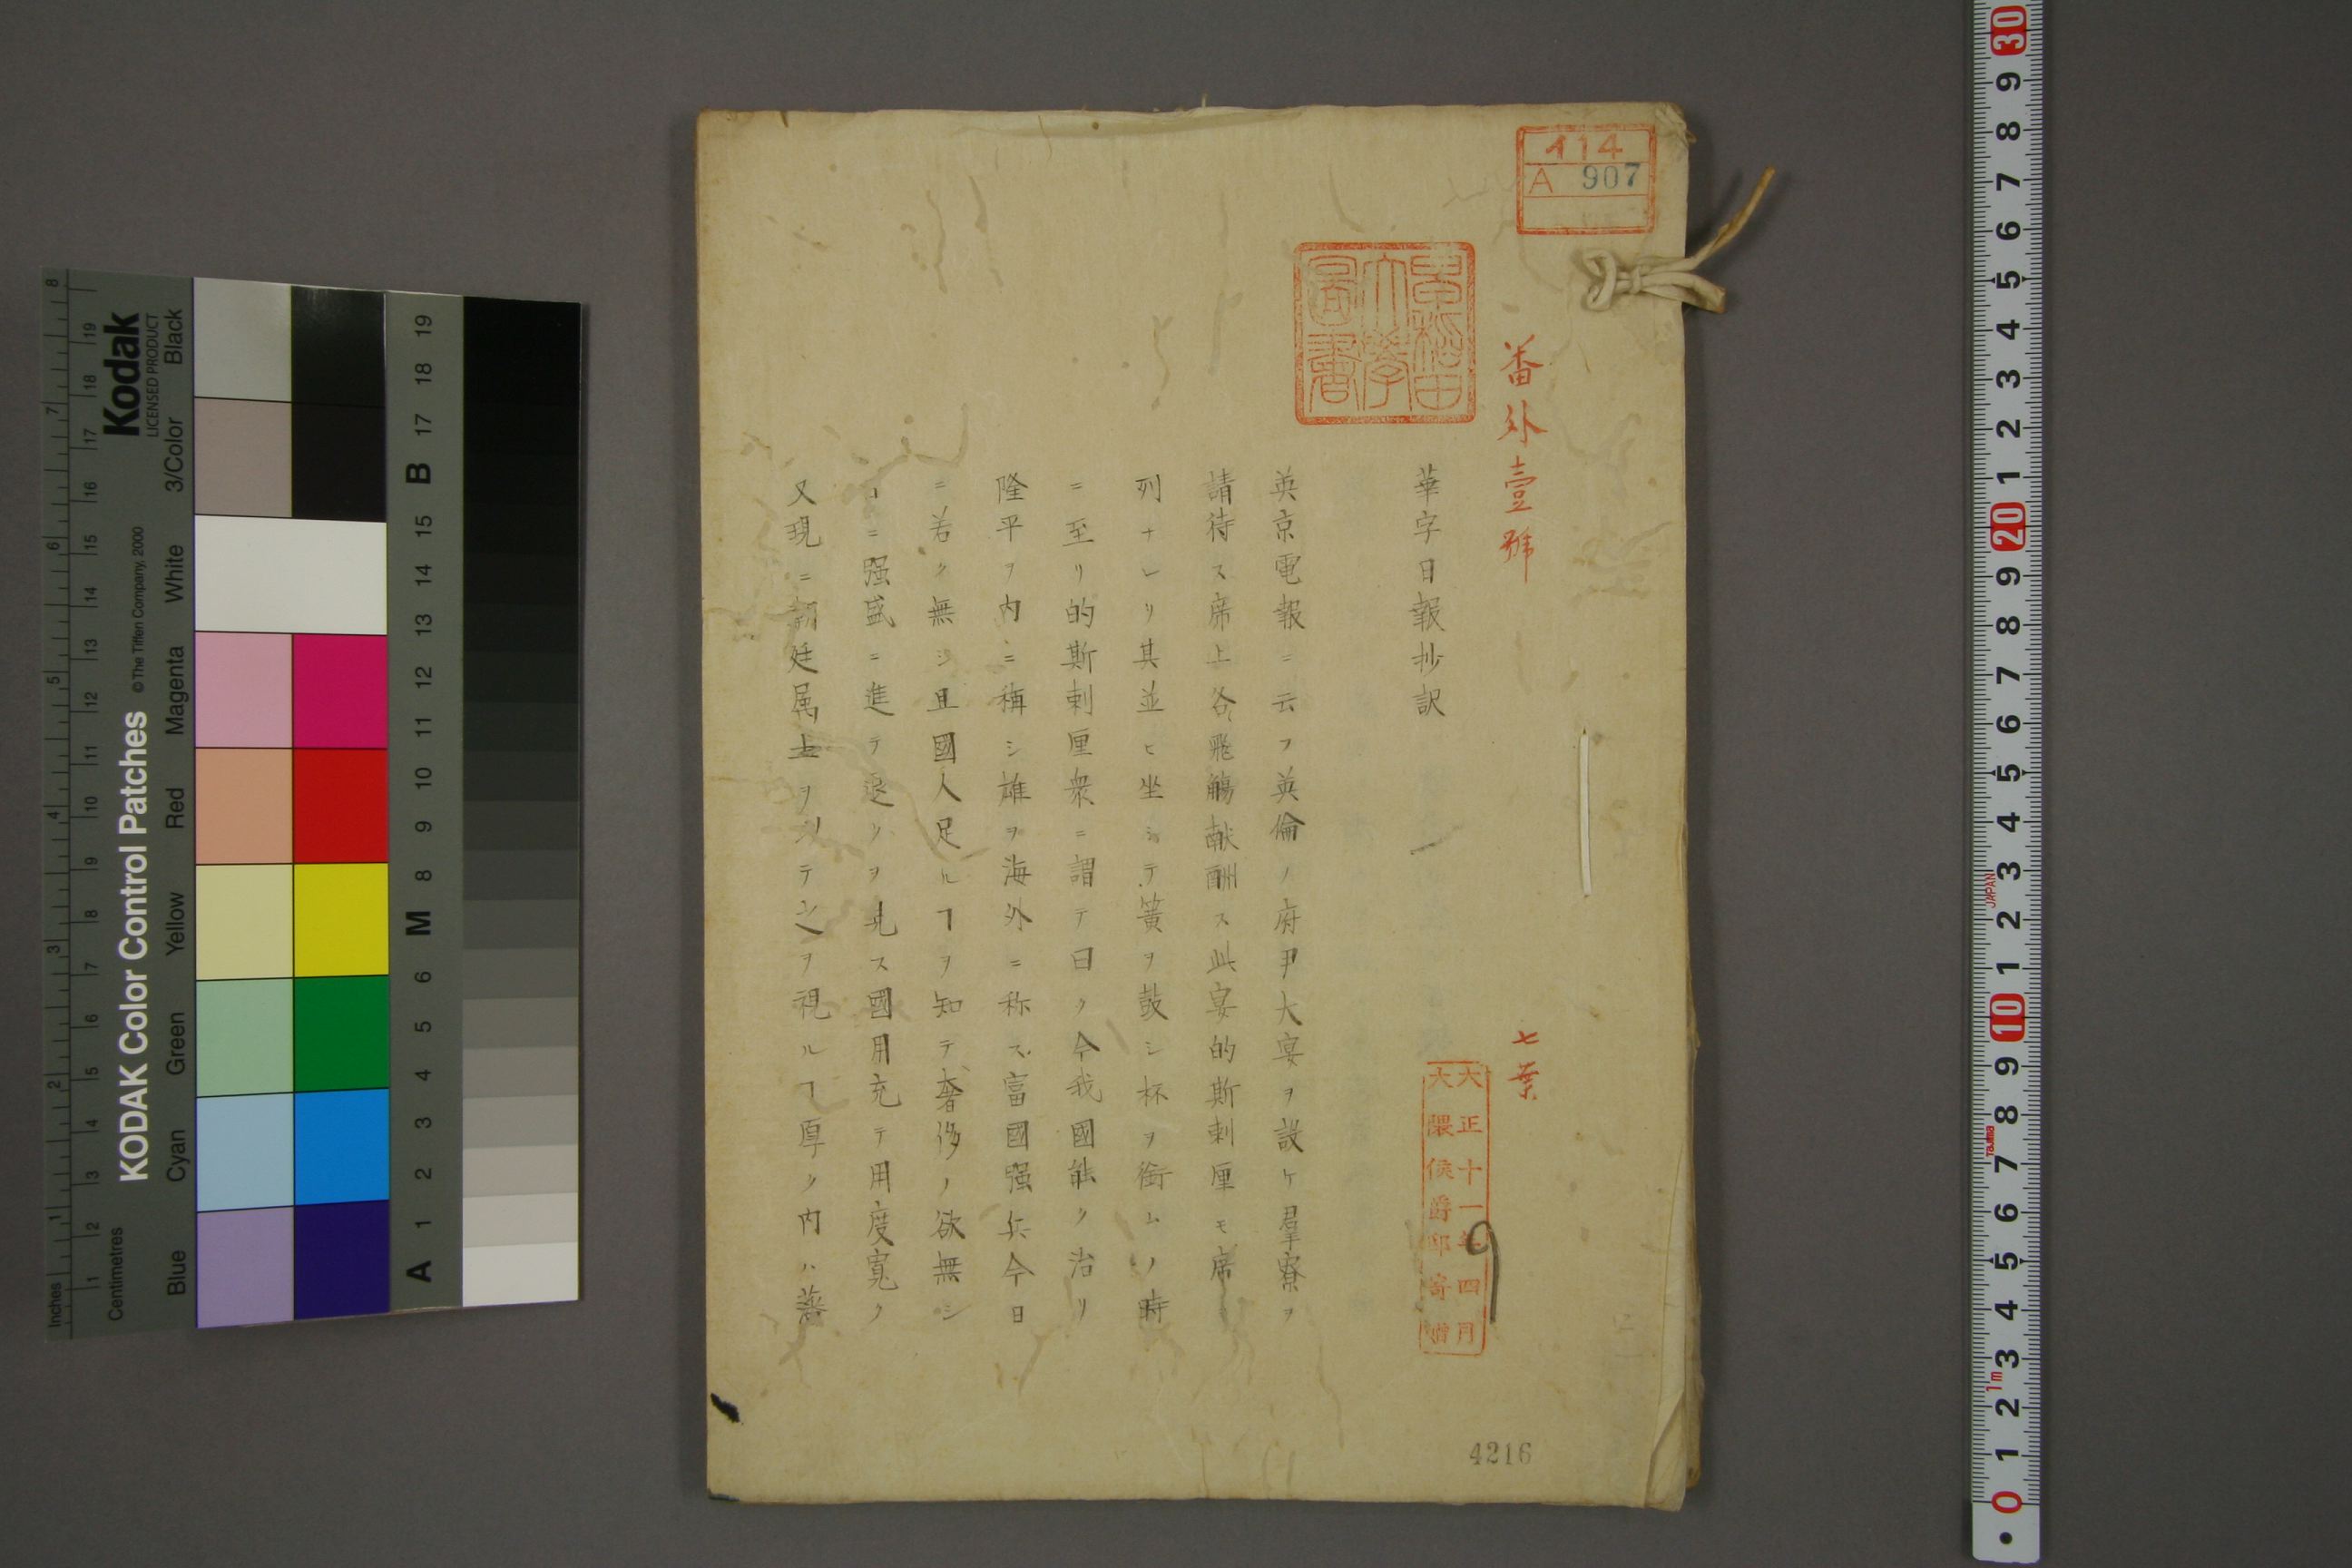 番外壹號
七葉
華字日報抄訳
英京電報ニ云フ英倫ノ府尹大宴ヲ設ケ羣寮ヲ
請待ス席上各飛觴献酬ス此宴的斯刺厘モ席
列ナレリ其並ヒ坐シテ簧ヲ鼓シ杯ヲ銜ムノ時
ニ至リ的斯刺厘衆ニ謂テ曰ク今我國能ク治リ
隆平ヲ内ニ稱シ雄ヲ海外ニ称ス富國强兵今日
ニ若ク無シ且國人足ルヿヲ知テ奢侈ノ欲無シ
ニ强盛ニ進テ退クヲ見ス國用充テ用度寬ク
又現ニ朝廷属土ヲシテ之ヲ視ルヿ厚ク内ハ藩
イ14
A 907
早稲田大學圖書
大正十一年四月
大隈侯爵邸寄贈
9
4216
KODAK Color Control Patches
Kodak
LICENSED PRODUCT
© The Tiffen Company, 2000
Inches
1 2 3 4 5 6 7 8
Centimetres
1 2 3 4 5 6 7 8 9 10 11 12 13 14 15 16 17 18 19
Blue Cyan Green Yellow Red Magenta White 3/Color Black
A 1 2 3 4 5 6 M 8 9 10 11 12 13 14 15 B 17 18 19
30 9 8 7 6 5 4 3 2 1 20 9 8 7 6 5 4 3 2 1 10 9 8 7 6 5 4 3 2 1 0
JAPAN
Tajima
1m